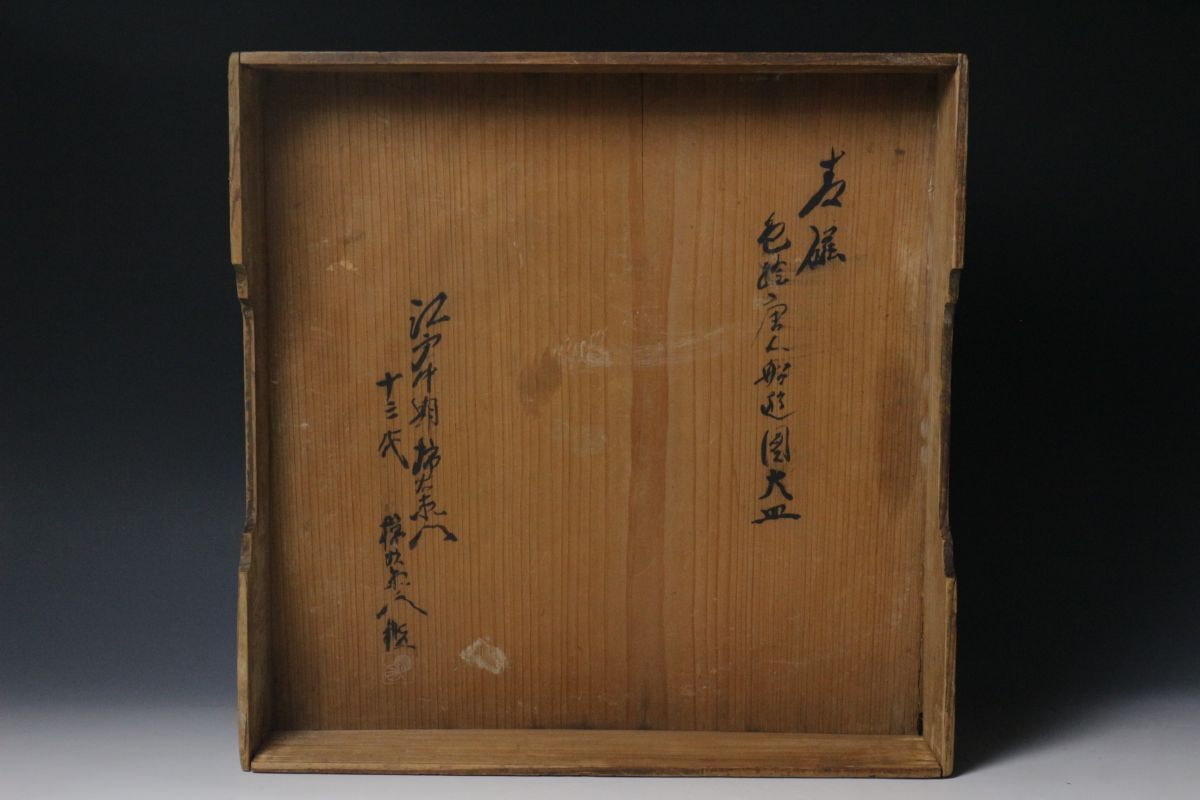 青磁
色絵唐人船遊図大皿
江戸中期柿右衛門
十三代 柿右衛門